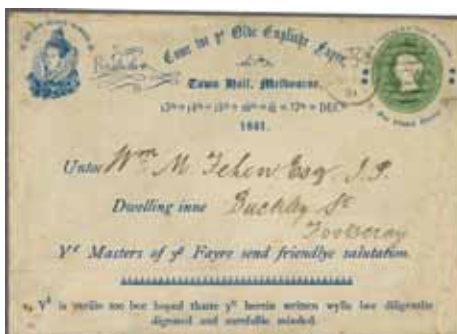 Come toe yᵉ Olde Englishe Fayre,
Town Hall, Melbourne,
13ᵗʰ 14ᵗʰ 15ᵗʰ 16ᵗʰ & 17ᵗʰ DECʳ
1881.
Untoe Wm M Fehon Esq J.P.
Dwelling inne Buckley St
Footscray
Yᵉ Masters of yᵉ Fayre send friendlye salutation
Yᵗ is yurilie toe bee hoped thatte yᵉ herein written wylle bee diligentlie
digested and carefullie minded.